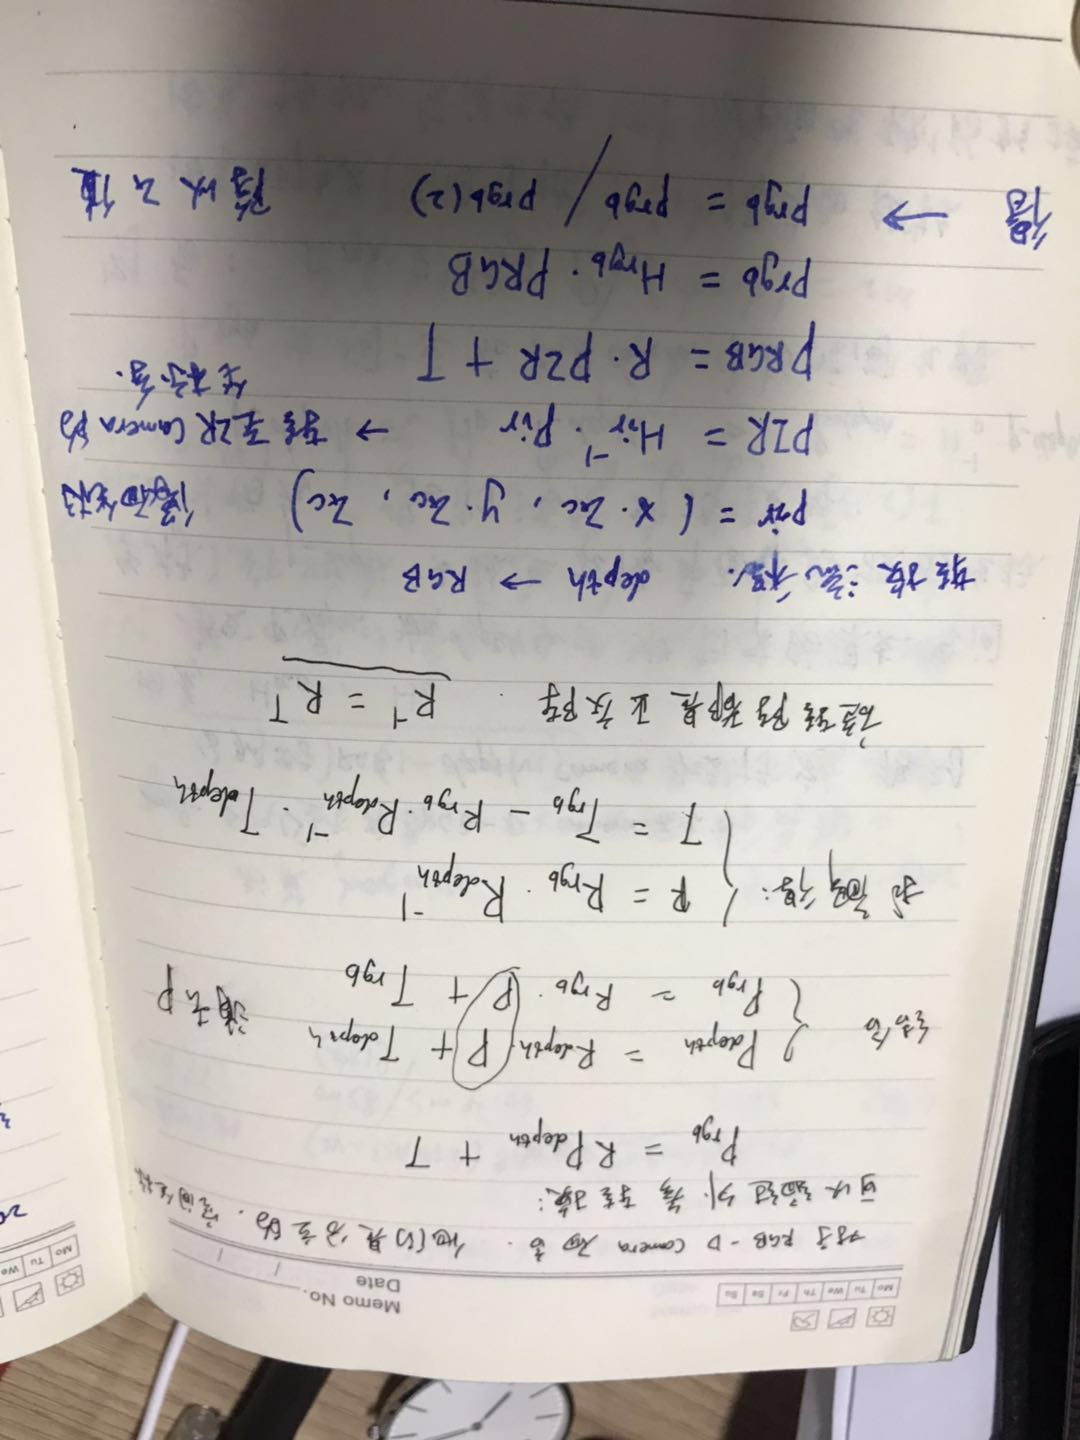 Mo Tu We Th Fr Sa Su
Memo No.
Date / /
对于 RGB-D Camera 而言. 他们是分立的. 空间坐标
可以通过外参转换:
Prgb = R Pdepth + T
结合 { Pdepth = Rdepth P + Tdepth 消去P
Prgb = Rrgb · P + Trgb
求解得: { R = Rrgb · Rdepth⁻¹
T = Trgb - Rrgb · Rdepth⁻¹ · Tdepth
旋转阵都是正交阵. R⁻¹ = Rᵀ
转换流程. depth → RGB
pir = (x·Zc, y·Zc, Zc) 像面坐标
PIR = Hir⁻¹ · pir → 转至IR Camera的
坐标系.
PRGB = R · PIR + T
prgb = Hrgb · PRGB
得 → prgb = prgb / prgb(2) 除以Z值
Mo Tu We